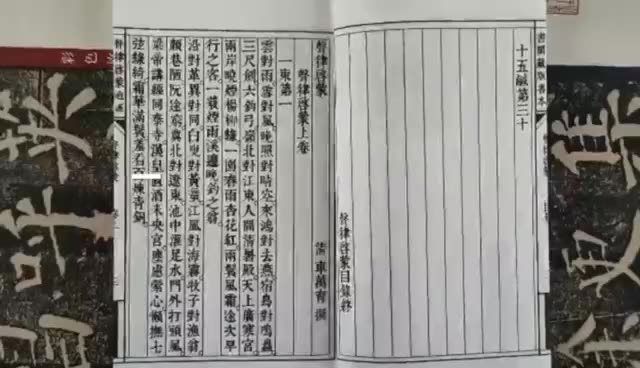 十五鹹第三十
聲律啓蒙目錄終
聲律啓蒙
聲律啓蒙上卷
清 車萬育 撰
一東第一
雲對雨雪對風晚照對晴空來鴻對去燕宿鳥對鳴蟲
三尺劍六鈞弓嶺北對江東人間清暑殿天上廣寒宮
兩岸曉煙楊柳綠一園春雨杏花紅兩鬢風霜途次早
行之客一蓑煙雨溪邊晚釣之翁
沿對革異對同白叟對黃童江風對海霧牧子對漁翁
顏巷陋阮途窮冀北對遼東池中濯足水門外打頭風
梁帝講經同泰寺漢皇置酒未央宮塵慮縈心懶撫七
弦綠綺霜華滿鬢羞青銅